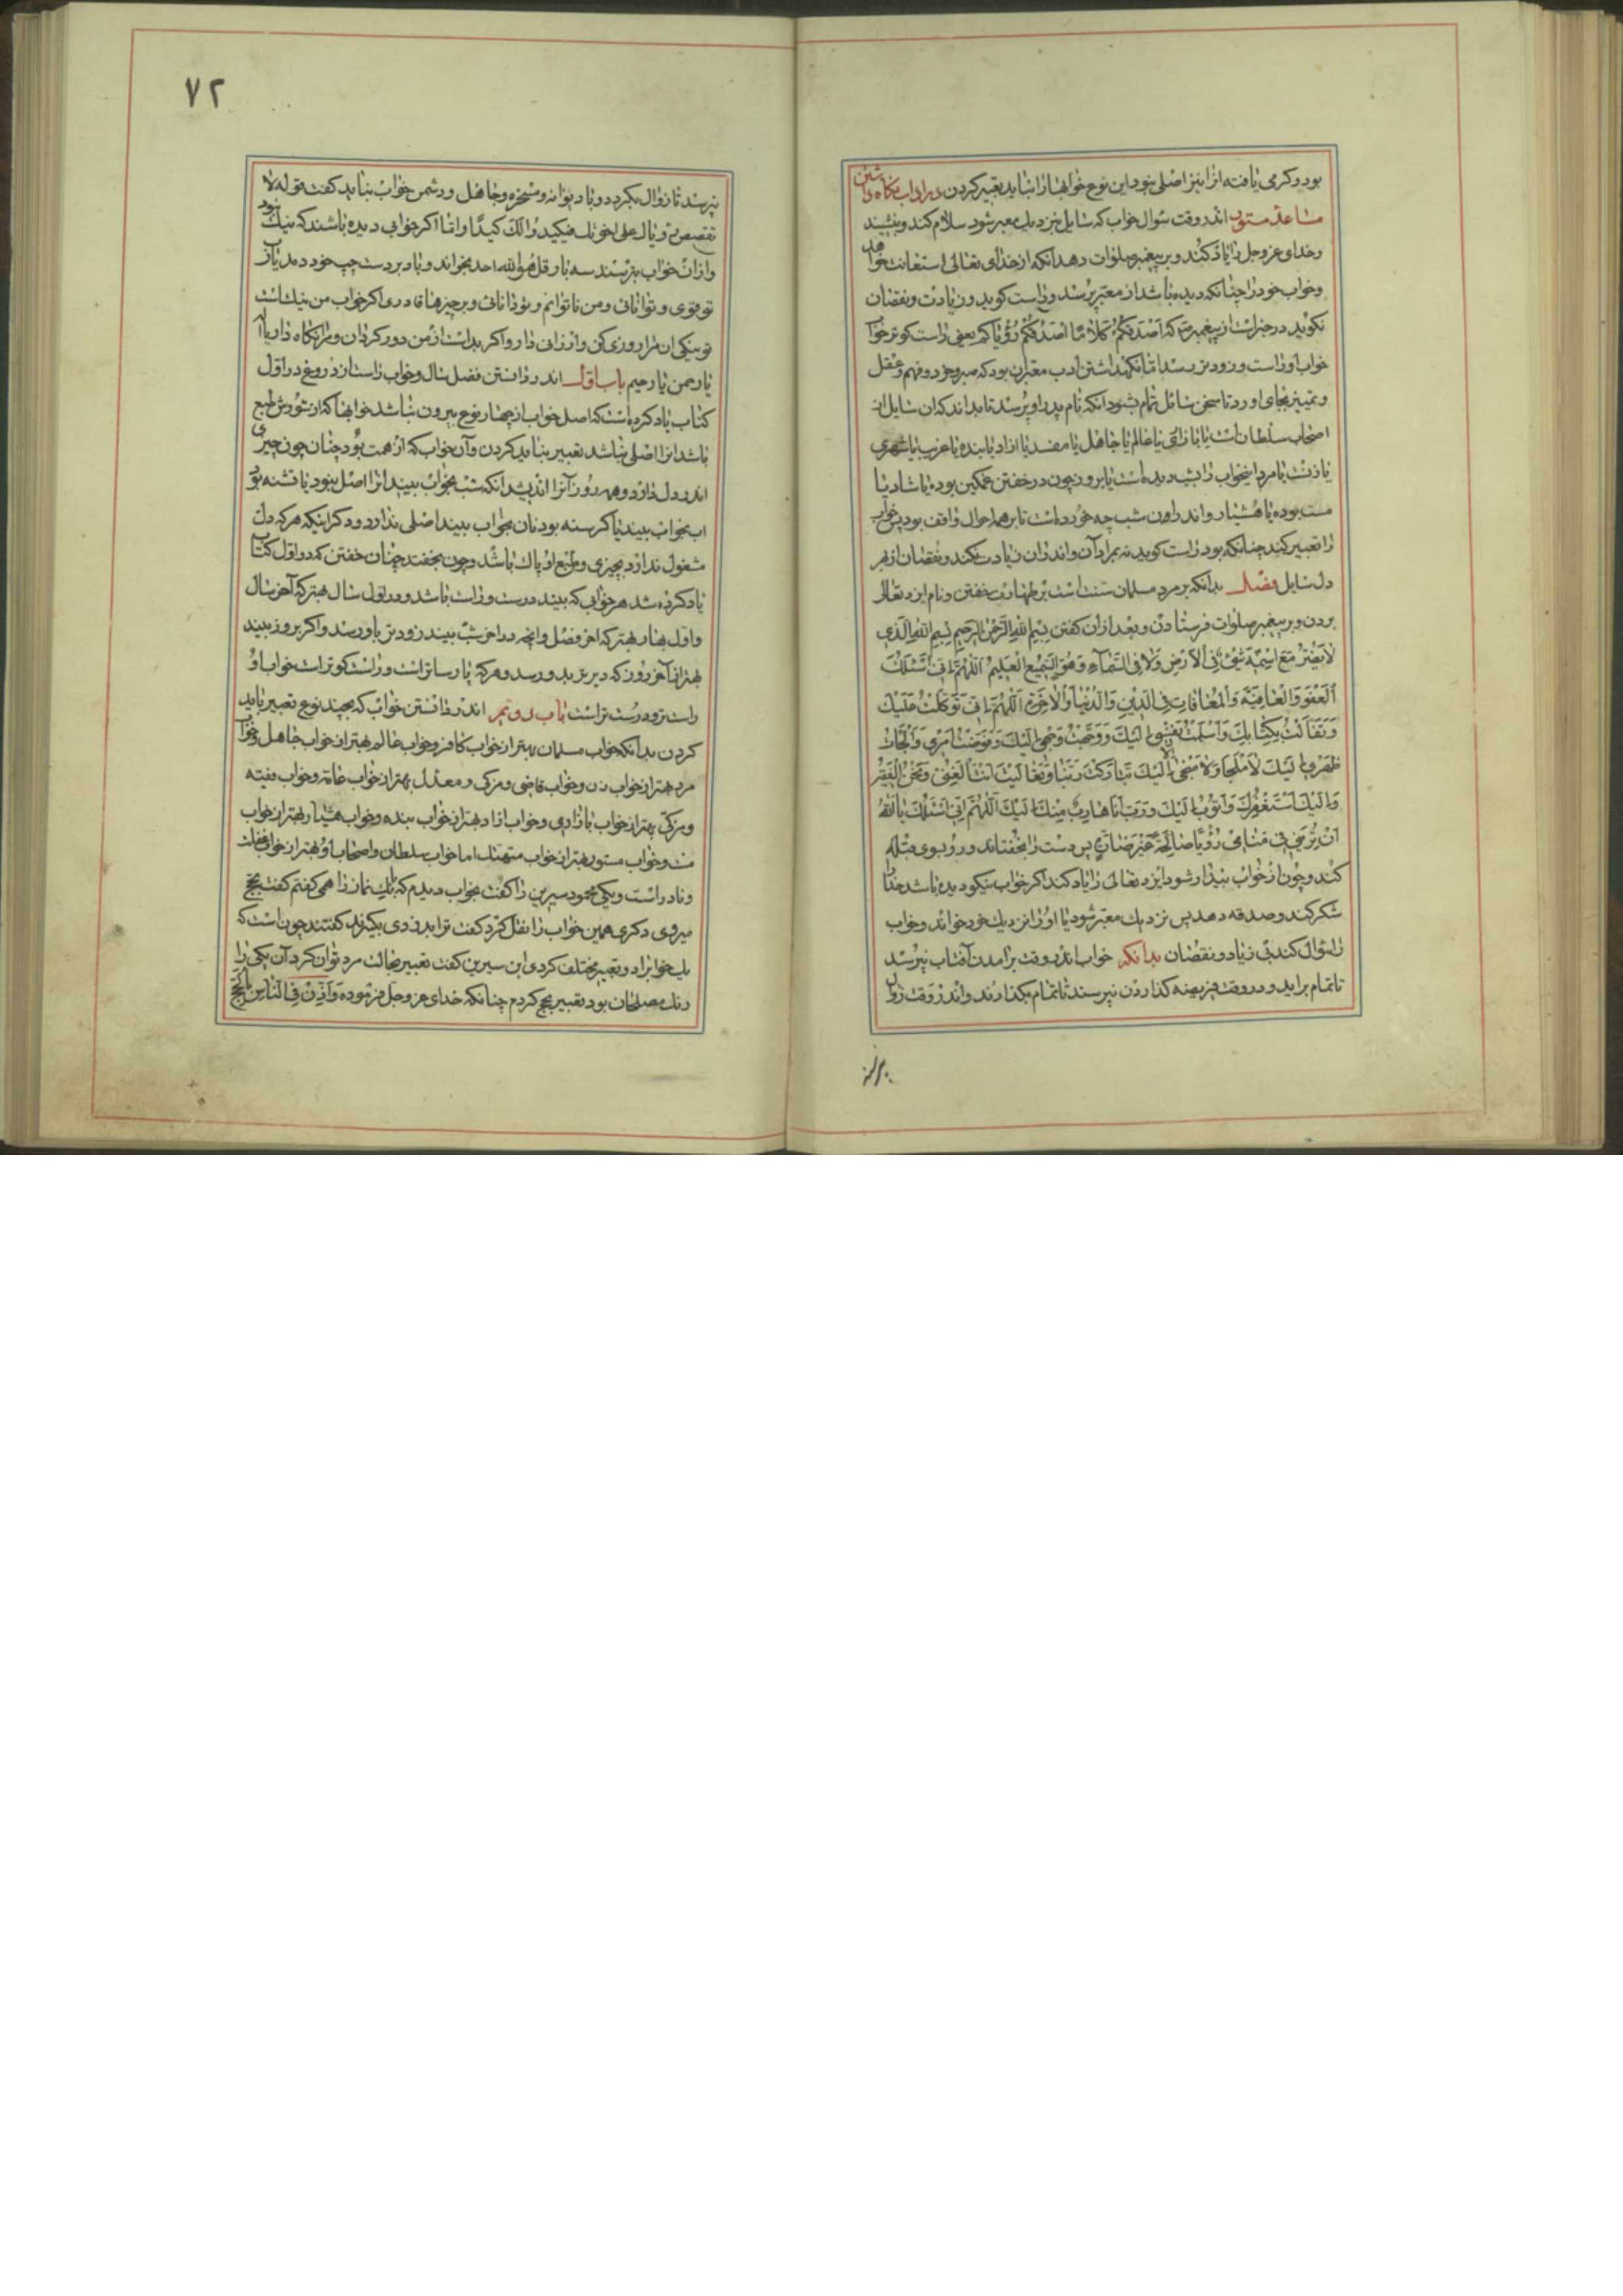 بود و کرمی یافته انرا نیز اصلی نبود این نوع خوابها را نباید تعبیر کردن در اداب نکاه داشتن
اندر وقت سؤال خواب که سایل بنزدیك معبر شود سلام کند و بنشیند
و خدای عز و جل را یاد کند و بر پیغمبر صلوات دهد انکه از خدای تعالی استعانت خواهد
و خواب خود را چنانکه دیده باشد از معبر پرسد و راست کوید و زیادت و نقصان
نکوید در خبر است از پیغمبر که اَصْدَقُکُمْ کَلاٰمًا اَصْدَقُکُمْ رُؤْیاٰ یعنی راست کوتر خواب
خواب او راست و زودتر رسد اما نکهداشتن ادب معبران بود که صبر و خرد و فهم و عقل
و تمییز بجای اورد تا سخن سائل تمام بشنود انکه نام پدر او پرسد تا بداند که ان سایل از
اصحاب سلطان است یا بازاری یا عالم یا جاهل یا مفسد یا ازاد یا بنده یا غریب یا شهری
یا زنست یا مرد این خواب را بشب دیده است یا بروز چون در خفتن غمکین بوده یا شاد یا
مست بوده یا هشیار و اندر اون شب چه خورده است تا بر همه احوال واقف بود پس خواب
را تعبیر کند چنانکه بود راست کوید نه بمراد آن و اندران زیادت نکند و نقصان از بهر
دل سایل فصل بدانکه بر مرد مسلمان سنت است بر طهارت خفتن و نام ایزد تعالی
بردن و بر پیغمبر صلوات فرستادن و بعد ازان کفتن بِسْمِ اللّٰهِ الرَّحْمٰنِ الرَّحِیمِ بِسْمِ اللّٰهِ الَّذِی
لاٰ یَضُرُّ مَعَ اسْمِهِ شَیْءٌ فِی الْاَرْضِ وَلاٰ فِی السَّمٰاءِ وَهُوَ السَّمِیعُ الْعَلِیمُ اَللّٰهُمَّ اِنِّی اَسْئَلُكَ
اَلْعَفْوَ وَالْعٰافِیَةَ وَالْمُعٰافٰاتِ فِی الدِّینِ وَالدُّنْیٰا وَالْاٰخِرَةِ اَللّٰهُمَّ اِنِّی تَوَکَّلْتُ عَلَیْكَ
بِکِتٰابِكَ وَاَسْلَمْتُ نَفْسِی اِلَیْكَ وَوَجَّهْتُ وَجْهِی اِلَیْكَ وَفَوَّضْتُ اَمْرِی وَاَلْجَأْتُ
ظَهْرِی اِلَیْكَ لاٰ مَلْجَأَ وَلاٰ مَنْجٰی اِلاّٰ اِلَیْكَ تَبٰارَکْتَ رَبَّنٰا وَتَعٰالَیْتَ اَنْتَ الْغَنِیُّ وَنَحْنُ الْفَقِیرُ
اَسْتَغْفِرُكَ وَاَتُوبُ اِلَیْكَ وَرَبِّ اَنٰا هٰارِبٌ مِنْكَ اِلَیْكَ اَللّٰهُمَّ اِنِّی اَسْئَلُكَ یٰا اَللّٰهُ
اَنْ تُرِیَنِی فِی مَنٰامِی رُؤْیًا صٰالِحَةً غَیْرَ ضٰارَّةٍ پس دست راخفتاند و رو بسوی قبله
کند و چون از خواب بیدار شود ایزد تعالی را یاد کند اکر خواب نیکو دیده باشد خدا را
شکر کند و صدقه دهد پس نزدیك معبر شود یا او را نزدیك خود خواند و خواب
را سؤال کند بی زیاد و نقصان بدانکه خواب اندر وقت برامدن آفتاب نپرسند
تا تمام براید و در وقت فریضه کذاردن نپرسند تا تمام بکذارند و اندر وقت زوال
۷۲
نپرسند تا زوال بکردد و با دیوانه و مسخره و جاهل و دشمن خواب نباید کفت قوله لا
تقصص رؤیاك علی اخوتك فیکیدوا لك کیدًا و اما اکر خوابی دیده باشند که نیك نبود
و ازان خواب بترسند سه بار قل هو الله احد بخواند و باد بر دست چپ خود دمد یا رب
تو قوی و توانائی و من ناتوانم و تو دانائی و بر چیزها قادری اکر خواب من نیك است
تو نیکی ان مرا روزی کن و ارزانی دار و اکر بد است از من دور کردان و مرا نکاه دار یا الله
یا رحمن یا رحیم باب اوّل اندر دانستن فضل سال و خواب راست از دروغ در اوّل
کتاب یاد کرده است که اصل خواب از چهار نوع بیرون نباشد خوابها که از شورش طبع
باشد انرا اصلی نباشد تعبیر نباید کردن و آن خواب که از همت بود چنان چون چیزی
اندر دل دارد و همه روز آنرا اندیشد انکه شب بخواب بیند انرا اصل نبود یا تشنه بود
اب بخواب بیند یا کرسنه بود نان بخواب بیند اصلی ندارد و دکر اینکه هر که دل
مشغول ندارد بچیزی و طبع او پاك باشد و چون بخفتد چنان خفتن که در اوّل کتاب
یاد کرده شد هر خوابی که بیند درست و راست باشد و در اوّل سال بهتر که آخر سال
و اوّل بهار بهتر که اخر فصل و انچه در اخر شب بیند زودتر باو رسد و اکر بروز بیند
بهتر از آخر روز که دیرتر بدو رسد و هر که پارساتر است و راست کوتر است خواب او
راست تر و درست تر است باب دویم اندر دانستن خواب که بچند نوع تعبیر باید
کردن بدانکه خواب مسلمان بهتر از خواب کافر و خواب عالم بهتر از خواب جاهل و خواب
مرد بهتر از خواب زن و خواب قاضی و مزکی و معدل بهتر از خواب عامه و خواب فقیه
و مزکی بهتر از خواب بازاری و خواب ازاد بهتر از خواب بنده و خواب هشیار بهتر از خواب
مست و خواب مستور بهتر از خواب متهتك اما خواب سلطان و اصحاب او بهتر از خواب
و نادر است و یکی محمود سیرین را کفت بخواب دیدم که بانك نماز را همی کفتم کفت بحج
میروی دکری همین خواب را نقل کرد کفت ترا بدزدی بکیرند کفتند چون است که
یك خواب را دو تعبیر مختلف کردی ابن سیرین کفت تعبیر بحالت مرد توان کرد آن یکی را
رنك مصلحان بود تعبیر بحج کردم چنانکه خدای عز و جل فرموده وَاَذِّنْ فِی النّٰاسِ بِالْحَجِّ